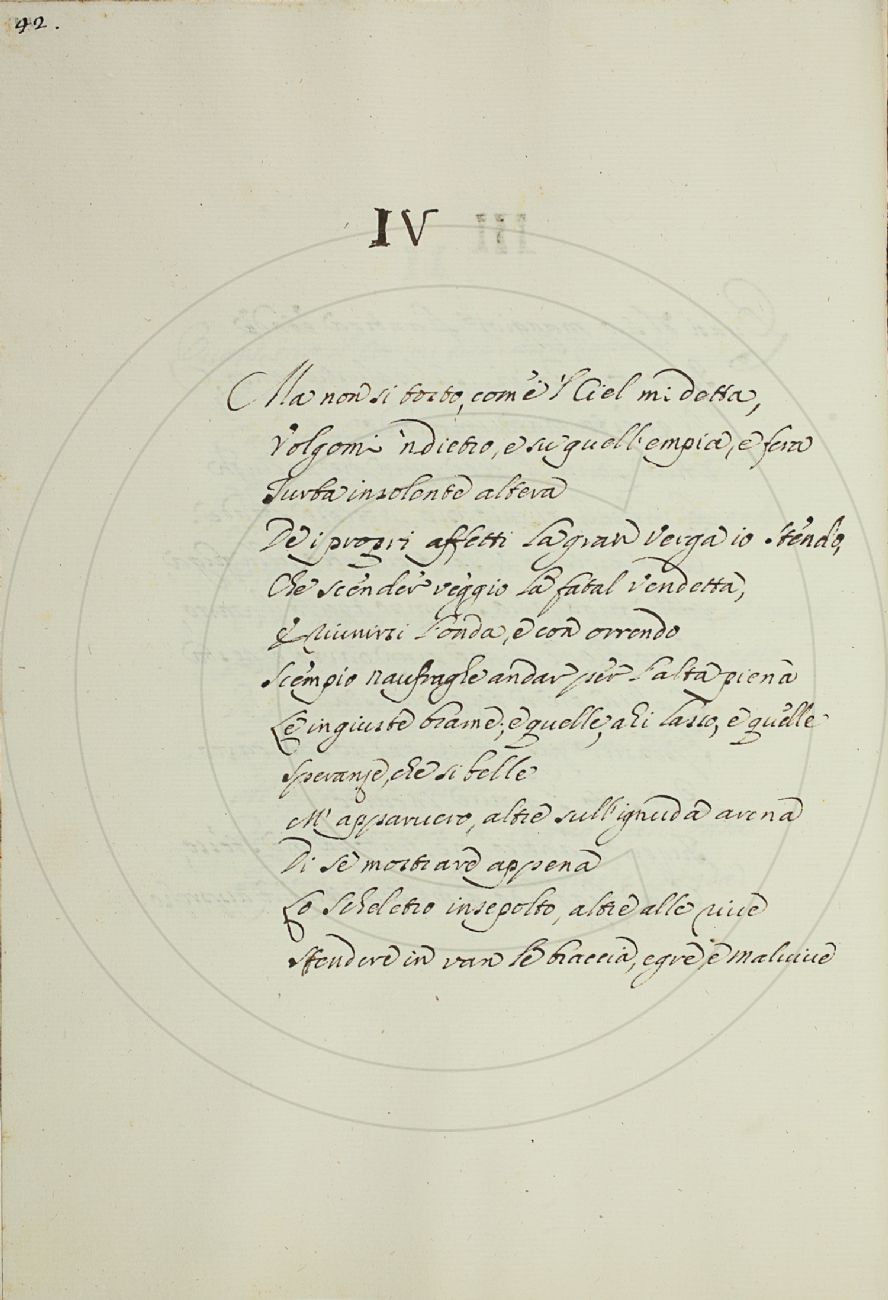 42.
IV
Ma non si tosto, com'è 'l Ciel mi detta,
Volgomi 'ndietro, e su quell'empia, e fera
Turba insolente altera
De i propri affetti la gran Verga io stendo,
Che scender veggio la fatal Vendetta,
E riunirsi l'onda, e con orrendo
Scempio naufraghe andar per l'alta piena
Le ingiuste brame; e quelle, ahi lasso, e quelle
Speranze, che sì belle
M'apparuero, altre sull'ignuda arena
Di sè mostrare appena
Lo Scheletro insepolto, altre alle riue
Stendere in van le braccia, egre, e maluiue